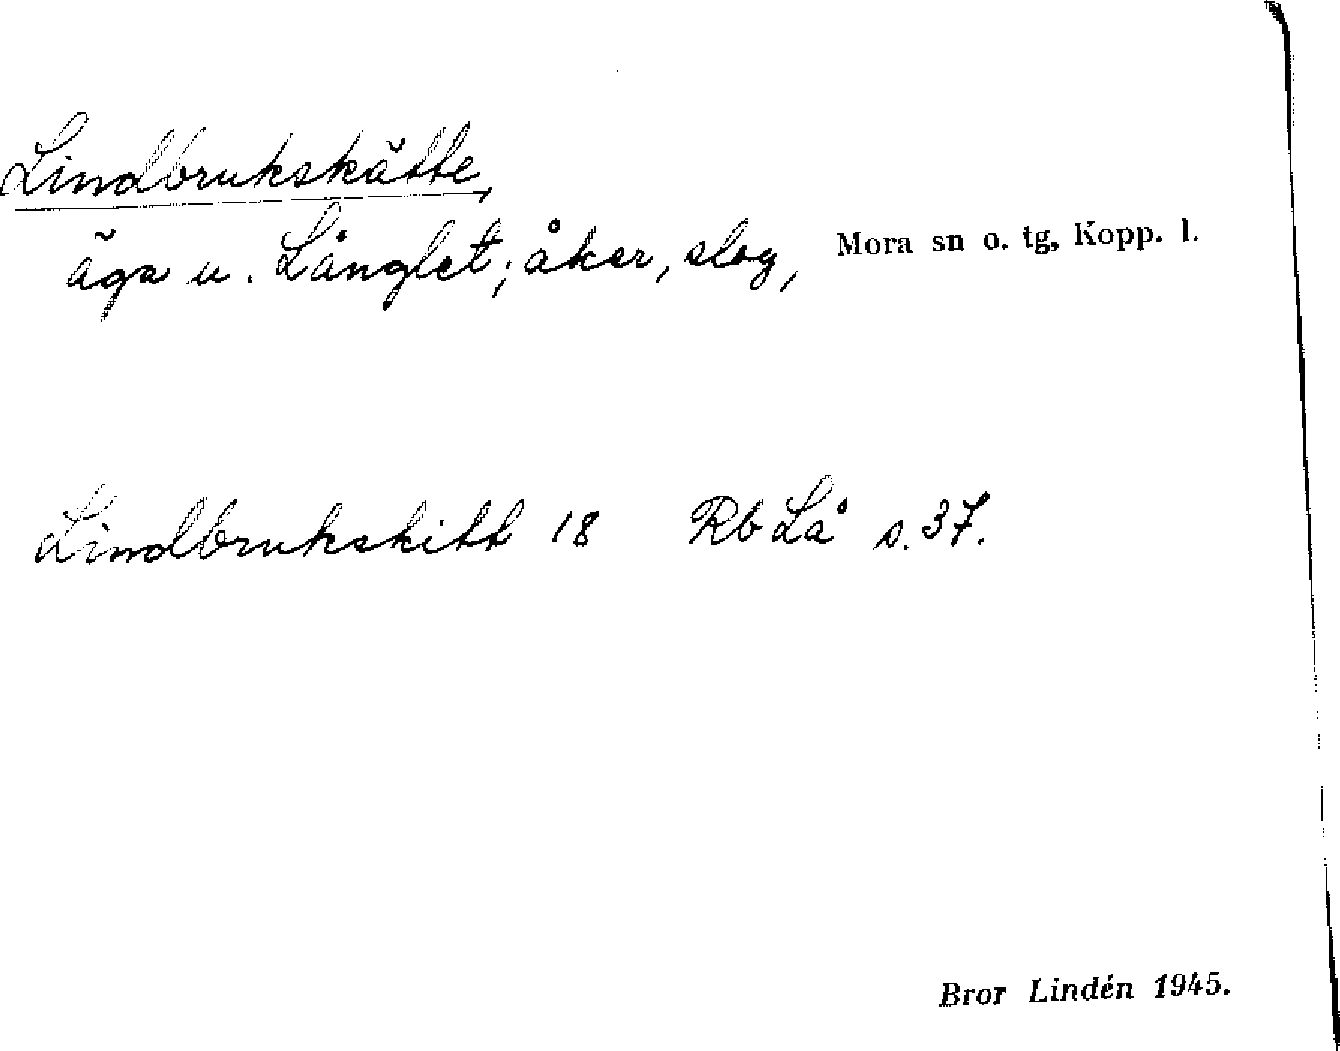 Lindbrukskätte,
äga u. Långlet; åker, slog, Mora sn o. tg, Kopp. l.
Lindbrukskitt 18 Rb Lå s. 37.
Bror Lindén 1945.